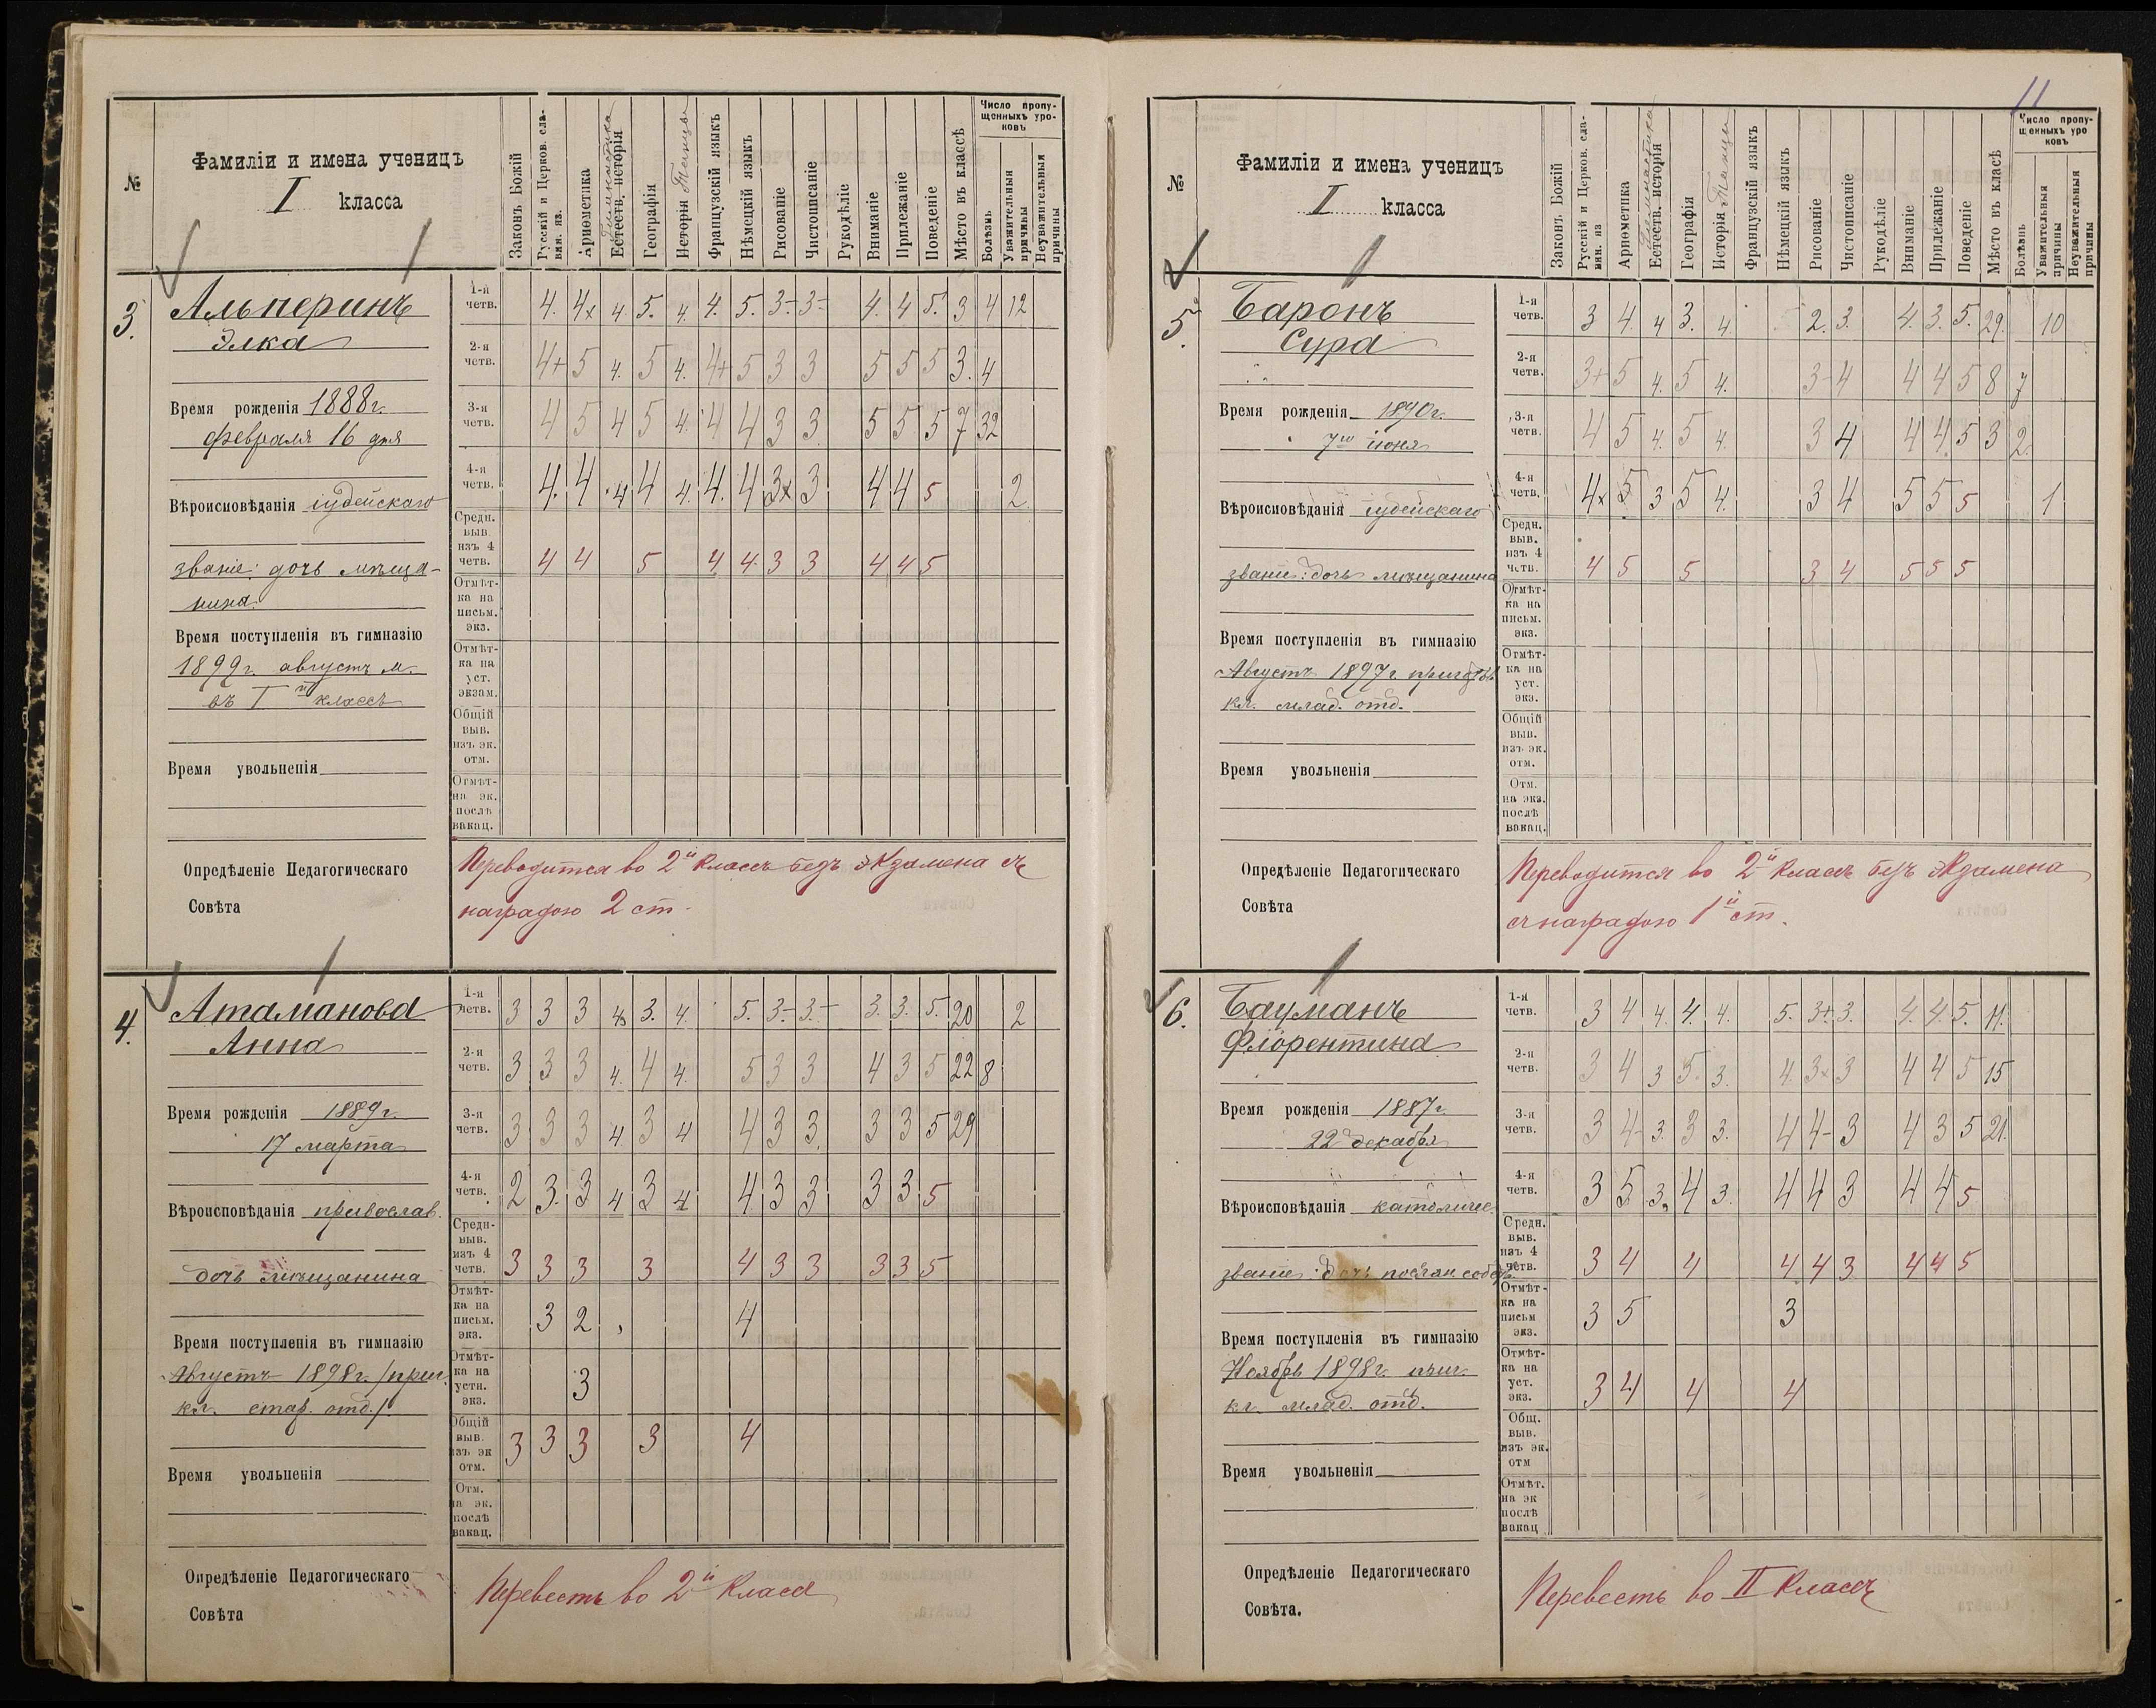 №
Фамиліи и имена ученицъ
I класса
Законъ Божій
Русскій и Церков. сла-
вян. яз.
Ариѳметика
Гимнастика
Естеств. исторія
Географія
Исторія Танцы
Французскій языкъ
Нѣмецкій языкъ
Рисованіе
Чистописаніе
Рукодѣліе
Вниманіе
Прилежаніе
Поведеніе
Мѣсто въ классѣ
Число пропу-
щенныхъ уро-
ковъ
Болѣзнь
Уважительныя
причины
Неуважительныя
причины
3.
Альперинъ
Элка
Время рожденія 1888г.
февраля 16 дня
Вѣроисповѣданія іудейскаго
званіе: дочь мѣща-
нина.
Время поступленія въ гимназію
1899г. августъ м.
въ I й классъ
Время увольненія
1-я четв. 4. 4х 4 5. 4. 4. 5. 3- 3- 4. 4 5. 3 4 12
2-я четв. 4+ 5 4. 5 4. 4+ 5 3 3 5 5 5 3. 4
3-я четв. 4 5 4 5 4. 4 4 3 3 5 5 5 7 32
4-я четв. 4. 4 4 4 4. 4. 4 3х 3 4 4 5 2
Средн. выв. изъ 4 четв. 4 4 5 4 4. 3 3 4 4 5
Отмѣт-
ка на
письм.
экз.
Отмѣт-
ка на
уст.
экзам.
Общій
выв.
изъ эк.
отм.
Отмѣт-
на эк.
послѣ
вакац.
Опредѣленіе Педагогическаго
Совѣта
Переводится во 2й классъ безъ экзамена съ
наградою 2 ст.
4.
Атаманова
Анна
Время рожденія 1889г.
17 марта
Вѣроисповѣданія православ.
дочь мѣщанина
Время поступленія въ гимназію
Августъ 1898г. /приг.
кл. стар. отд./.
Время увольненія
1-я четв. 3 3 3 4 3. 4. 5. 3- 3- 3. 3. 5. 20 2
2-я четв. 3 3 3 4. 4 4. 5 3 3 4 3 5 22 8
3-я четв. 3 3 3 4 3 4 4 3 3. 3 3 5 29
4-я четв. 2 3. 3 4 3 4 4. 3 3 3 3 5
Средн- выв. изъ 4 четв. 3 3 3 3 4 3 3 3 3 5
Отмѣт- ка на письм. экз. 3 2 4
Отмѣт- ка на устн. экз. 3
Общій выв. изъ эк отм. 3 3 3 3 4
Отм.
на эк.
послѣ
вакац.
Опредѣленіе Педагогическаго
Совѣта
Перевесть во 2й класс
11
№
Фамиліи и имена ученицъ
I класса
Законъ Божій
Русскій и Церков. сла-
вян. яз
Ариѳметика
Гимнастика
Естеств. исторія
Географія
Исторія Танцы
Французскій языкъ
Нѣмецкій языкъ
Рисованіе
Чистописаніе
Рукодѣліе
Вниманіе
Прилежаніе
Поведеніе
Мѣсто въ классѣ
Число пропу-
щенныхъ уро
ковъ
Болѣзнь
Уважительныя
причины
Неуважительныя
причины
5.
Баронъ
Сура
Время рожденія 1890г.
7го іюня
Вѣроисповѣданія іудейскаго
званіе: дочь мѣщанина
Время поступленія въ гимназію
Августъ 1897г. пригот.
кл. млад. отд.
Время увольненія
1-я четв. 3 4. 4 3. 4. 2. 3. 4. 3. 5. 29. 10
2-я четв. 3+ 5 4. 5 4. 3- 4 4 4 5 8 7
3-я четв. 4 5 4. 5 4. 3 4 4 4 5 3 2.
4-я четв. 4х 5 3 5 4. 3 4 5 5 5 1
Средн. выв. изъ 4 четв. 4 5 5 3 4 5 5 5
Отмѣт-
ка на
письм.
экз.
Отмѣт-
ка на
уст.
экз.
Общій
выв.
изъ эк.
отм.
Отм.
на экз.
послѣ
вакац.
Опредѣленіе Педагогическаго
Совѣта
Переводится во 2й классъ безъ экзамена
съ наградою 1й ст.
6.
Бауманъ
Флорентина
Время рожденія 1887г.
22 декабря
Вѣроисповѣданія католичес.
званіе: дочь
Время поступленія въ гимназію
Ноябрь 1898г. приг.
кл. млад. отд.
Время увольненія
1-я четв. 3 4 4. 4. 4. 5. 3+ 3. 4. 4. 5. 11.
2-я четв. 3 4 3 5. 3. 4. 3х 3 4 4 5 15
3-я четв. 3 4- 3. 3 3. 4 4- 3 4 3 5 21.
4-я четв. 3 5 3. 4 3. 4 4 3 4 4 5
Средн. выв. изъ 4 четв. 3 4 4 4 4 3 4 4 5
Отмѣт- ка на письм экз. 3 5 3
Отмѣт- ка на уст. экз. 3 4 4 4
Общ.
выв.
изъ эк.
отм
Отмѣт.
на эк
послѣ
вакац
Опредѣленіе Педагогическаго
Совѣта.
Перевесть во II классъ